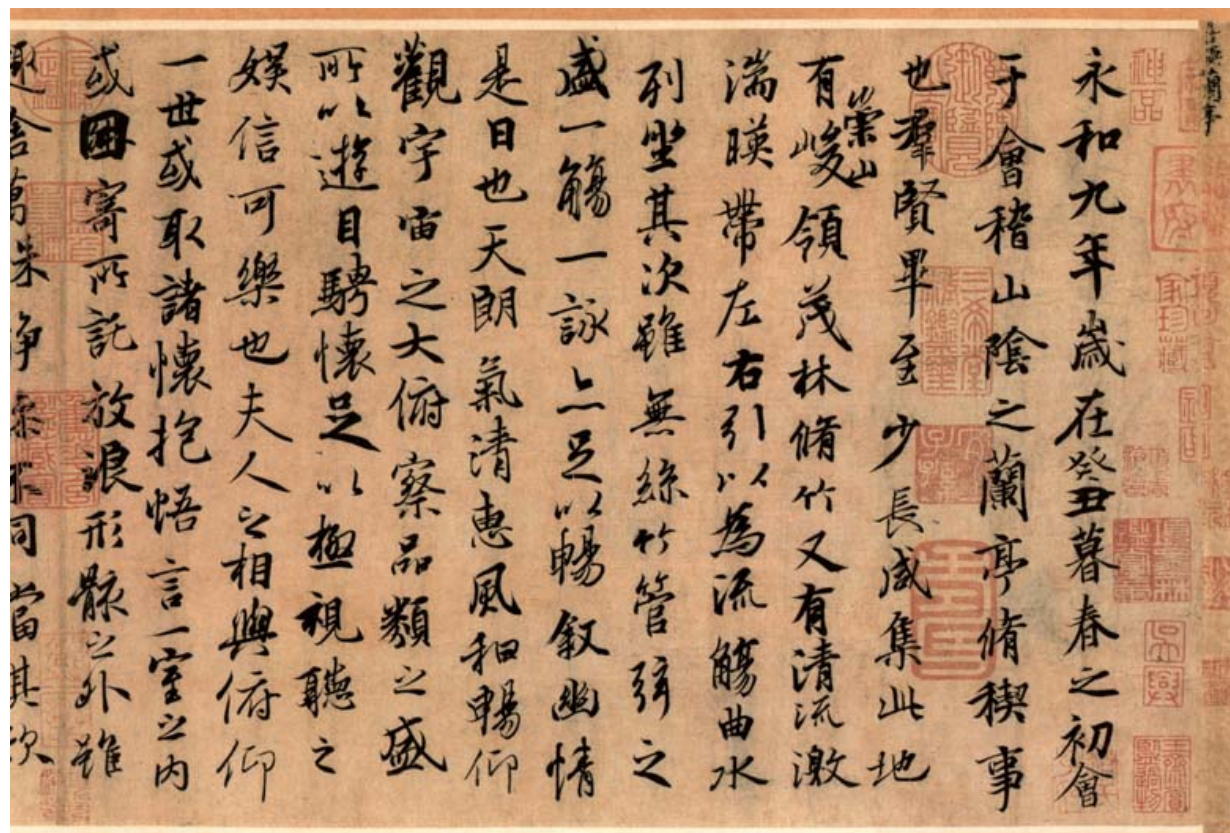 永和九年歲在癸丑暮春之初會
于會稽山陰之蘭亭脩稧事
也羣賢畢至少長咸集此地
有崇山峻領茂林脩竹又有清流激
湍暎帶左右引以為流觴曲水
列坐其次雖無絲竹管弦之
盛一觴一詠亦足以暢叙幽情
是日也天朗氣清惠風和暢仰
觀宇宙之大俯察品類之盛
所以遊目騁懷足以極視聽之
娛信可樂也夫人之相與俯仰
一世或取諸懷抱悟言一室之內
或因寄所託放浪形骸之外雖
舍萬殊静不同當其欣
三希堂精鑑璽
宜子孫